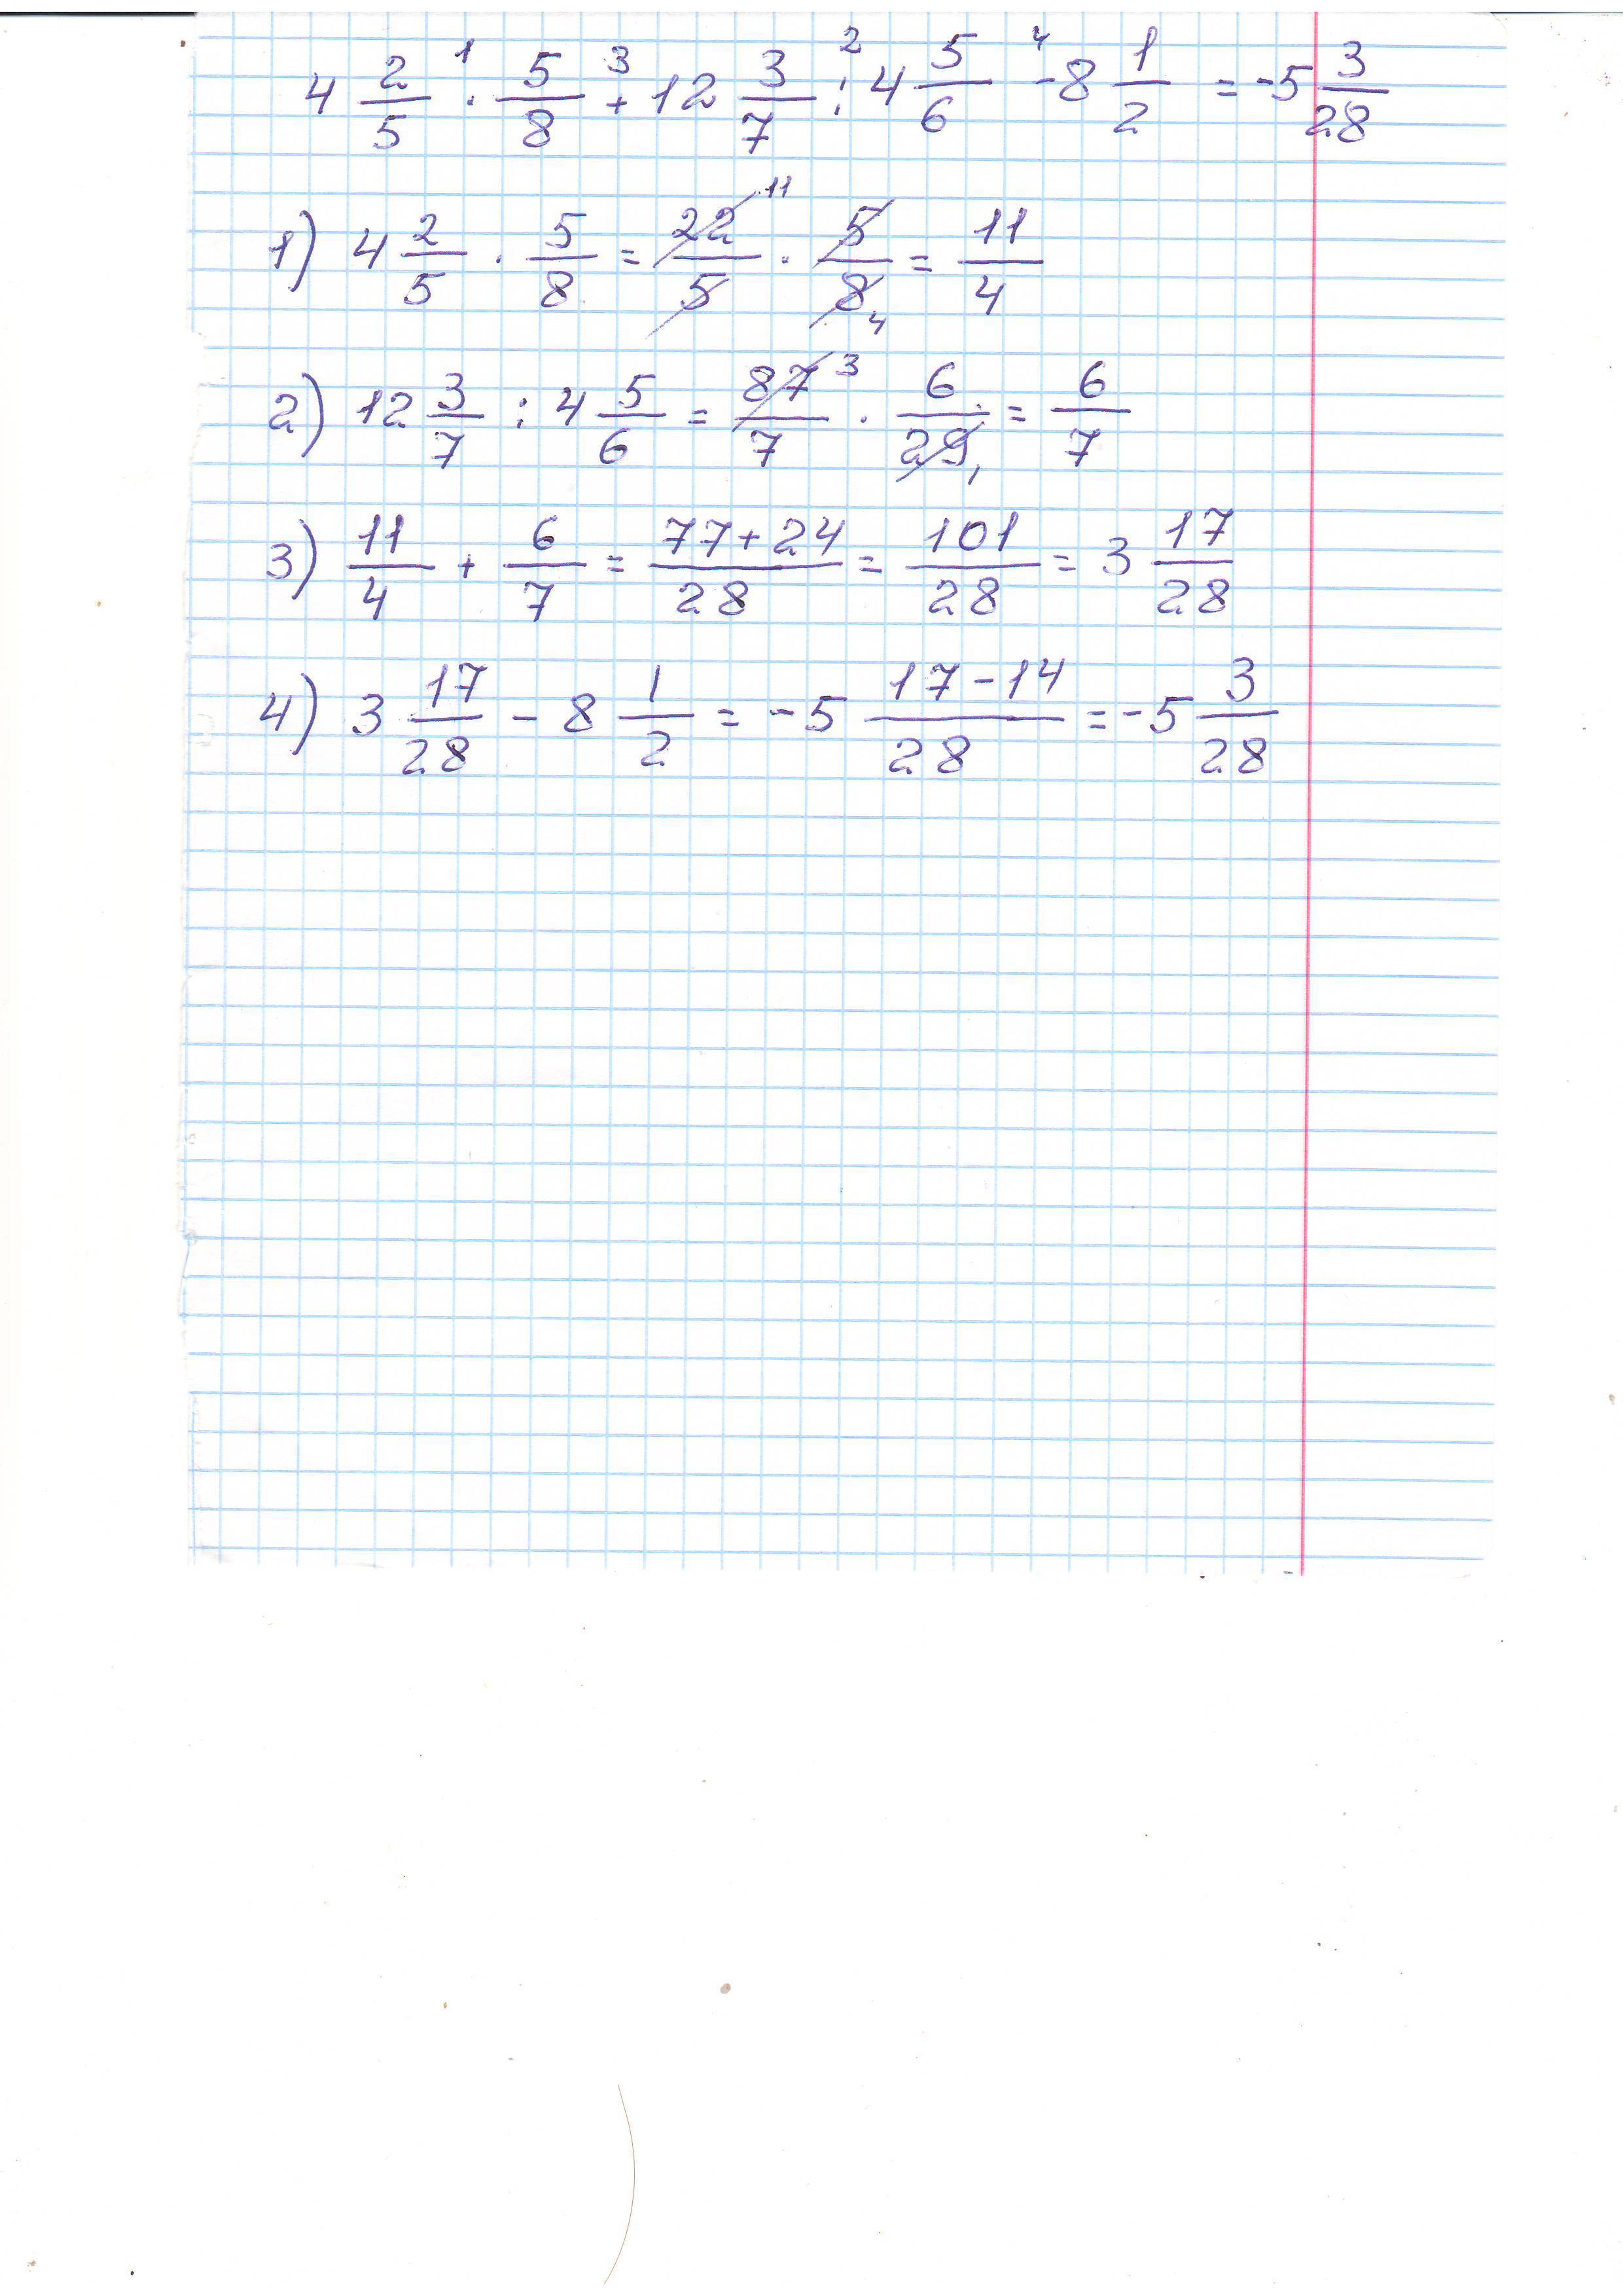 4 2/5 ¹· 5/8 ³+ 12 3/7 ²: 4 5/6 ⁴- 8 1/2 = -5 3/28
1) 4 2/5 · 5/8 = 22/5 ¹¹ · 5/8 ₄ = 11/4
2) 12 3/7 : 4 5/6 = 87/7 ³ · 6/29 ₁ = 6/7
3) 11/4 + 6/7 = 77+24/28 = 101/28 = 3 17/28
4) 3 17/28 - 8 1/2 = -5 17-14/28 = -5 3/28